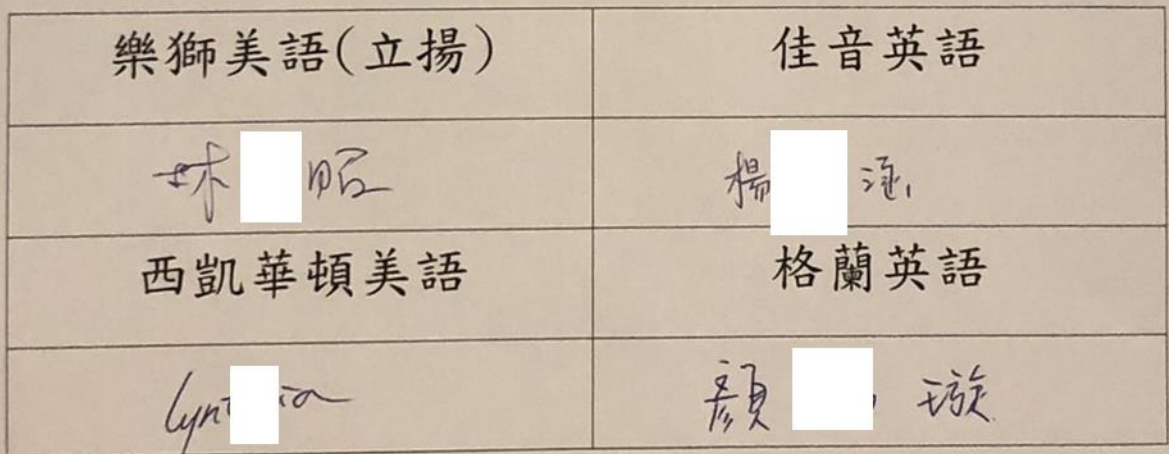 樂獅美語(立揚) 佳音英語
林 昭 楊 涵
西凱華頓美語 格蘭英語
顏 璇